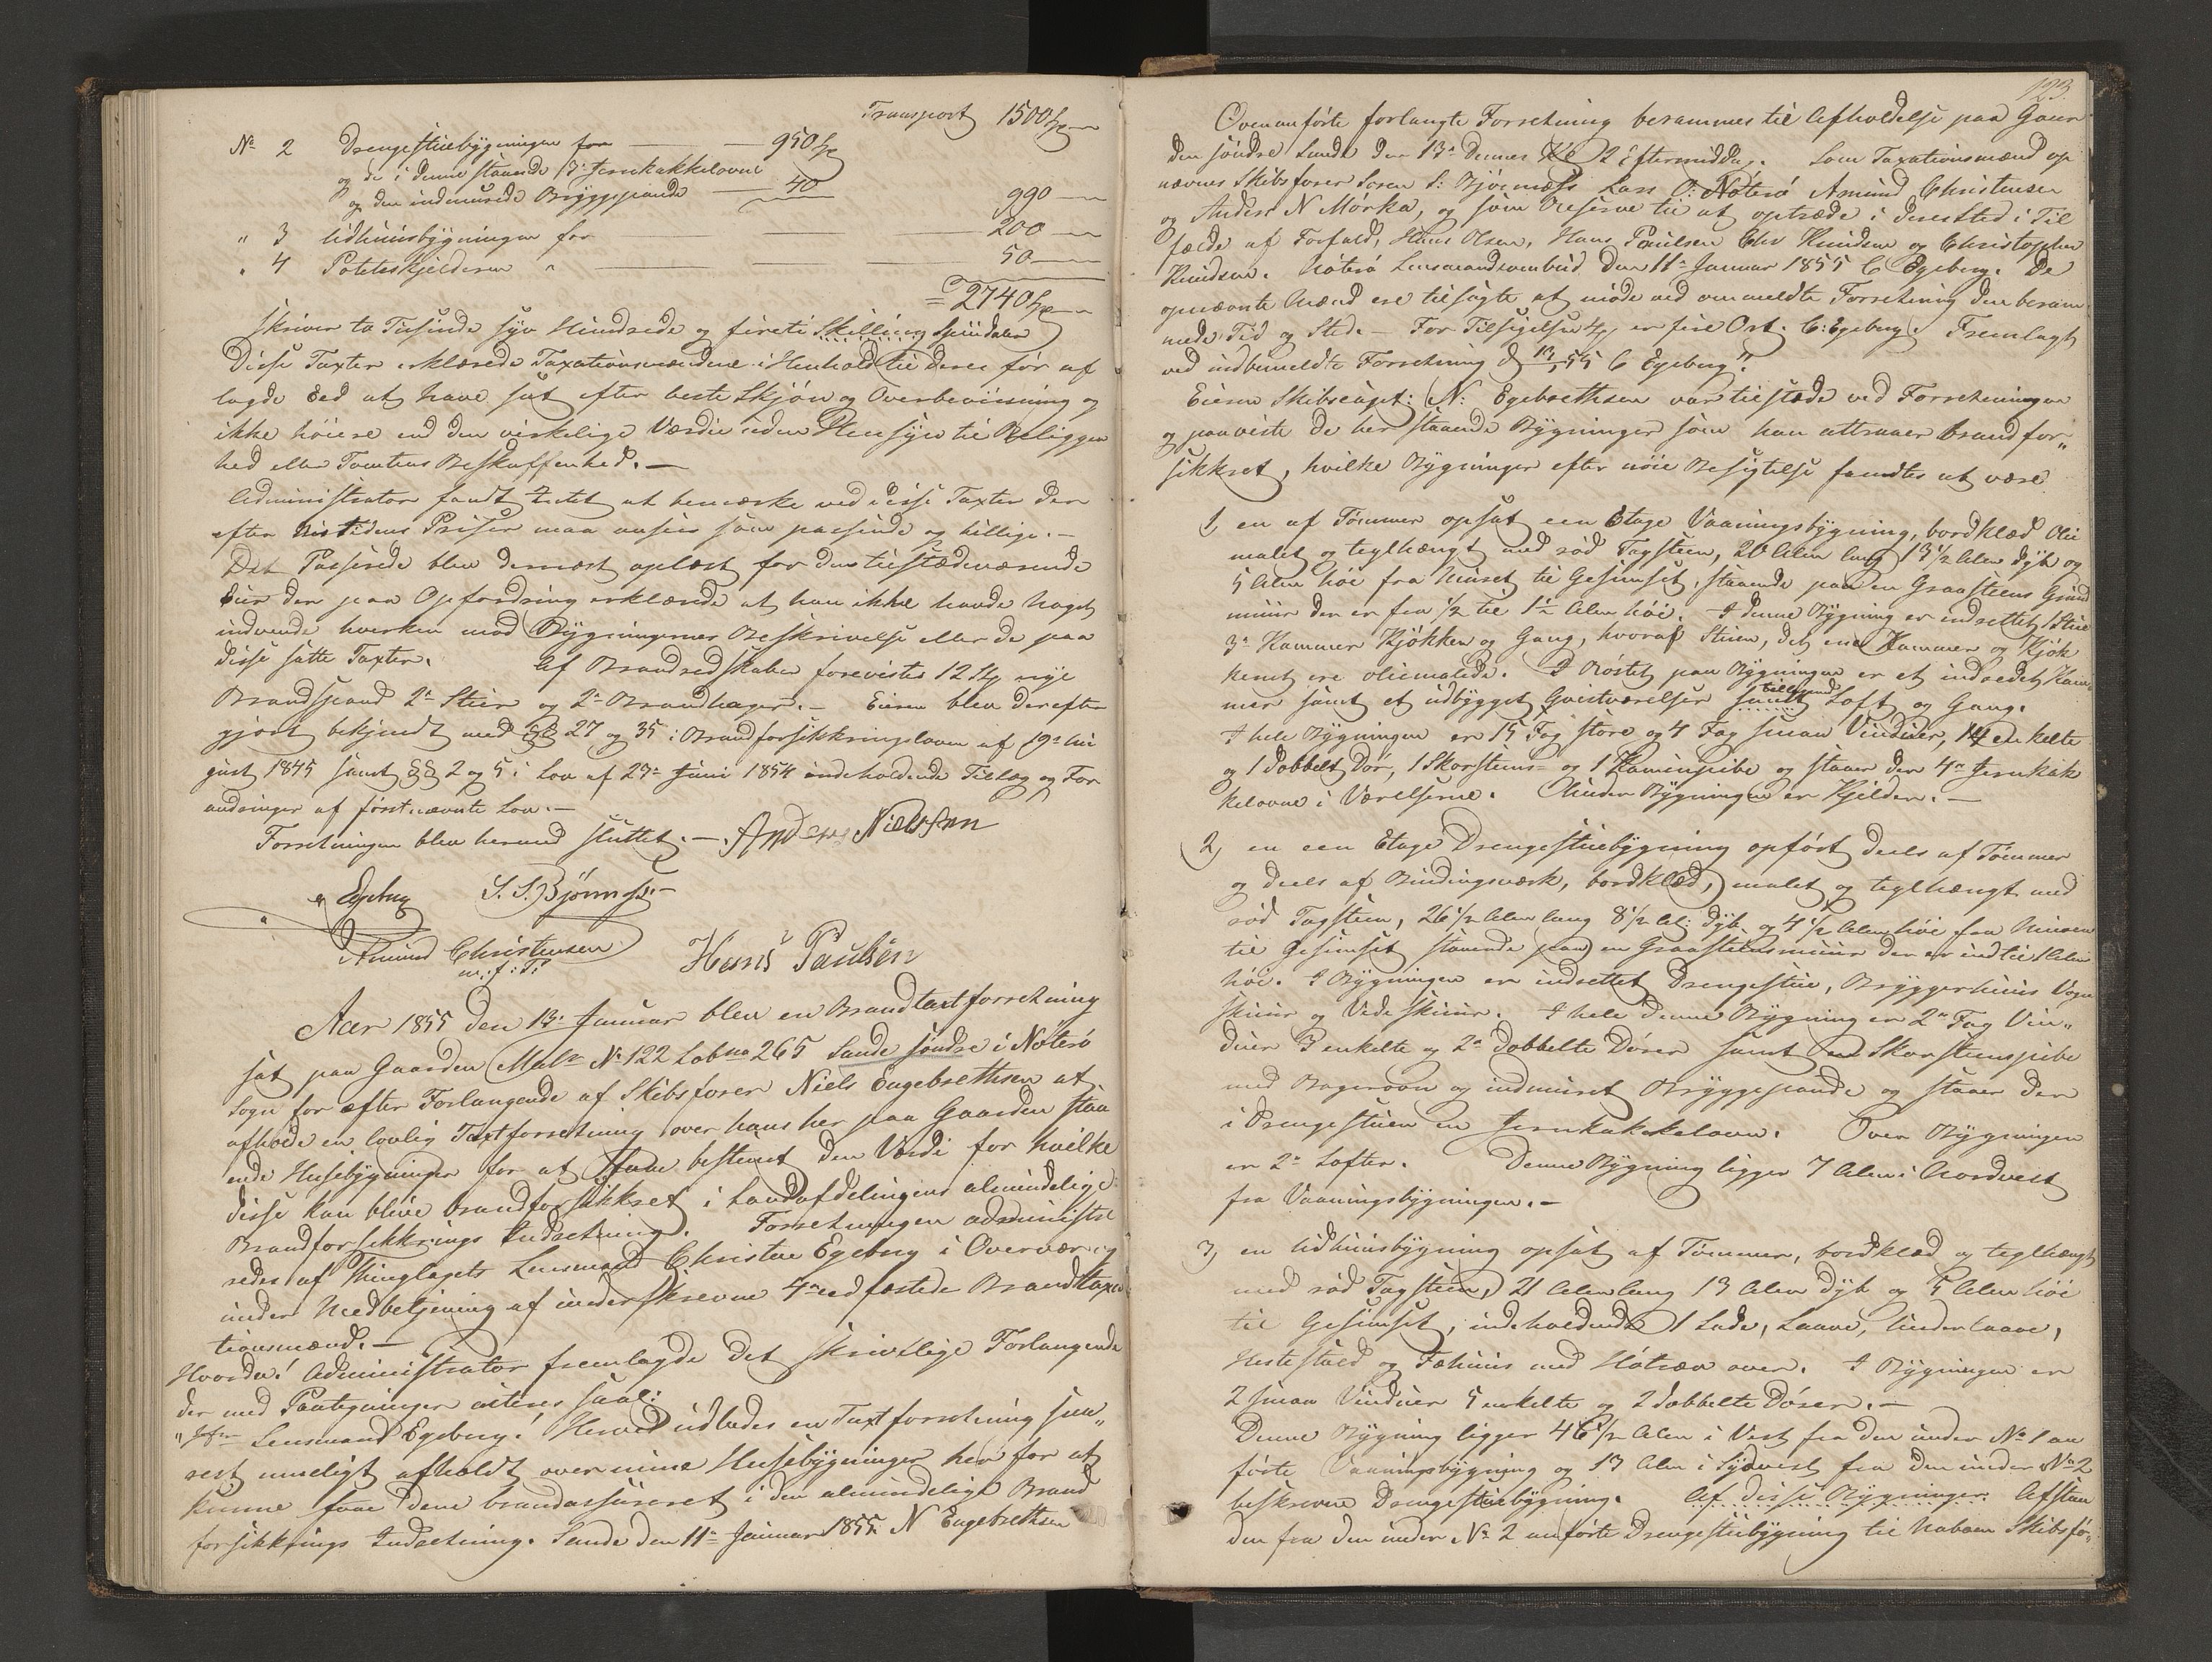 Transport 1500
No 2 Drengestuebygningen for 950
og de i denne staaende 3de Jernkakkelovne
og den indmurede Bryggepande 40 990
" 3 Udhuusbygningen for 200
" 4 Poteteskjelderen " 50
= 2740
skriver to Tusinde syv Hundrede og fireti Skilling Speciedaler
Disse Taxter erklærede Taxationsmændene i Henhold til deres før af
lagde Eed at have sat efter beste Skjøn og Overbeviisning og
ikke høiere end den virkelige Værdie uden Hensyn til Beliggen
hed eller Tomtens Beskaffenhed. —
Administrator fandt Intet at bemærke ved disse Taxter der
efter Nutidens Priser maa ansees som passende og billige. —
Det Passerede blev dernæst oplæst for den tilstædeværende
Eier der paa Opfordring erklærede at han ikke havde Noget
indvende hverken mod Bygningernes Beskrivelse eller de paa
disse satte Taxter. Af Brandredskaber forevistes 12 St nye
Brandspand 2de Stier og 2de Brandhager. — Eieren blev derefter
gjort bekjendt med §§ 27 og 35 i Brandforsikkringsloven af 19de Au
gust 1845 samt §§ 2 og 5 i Lov af 23de Juni 1854 indeholdende Tillæg og For
andringer af førstnævnte Lov. —
Forretningen blev hermed sluttet. — Anders Nielssen
Egeberg S. S. Bjørnæss —
Amund Christensen Hans Paulsen
m: f: P:
Aar 1855 den 13de Januar blev en Brandtaxtforretning
sat paa Gaarden Matr No 122 Løbno 265 Sande søndre i Nøterø
Sogn for efter Forlangende af Skibsfører Niels Engebrethsen at
afholde en lovlig Taxtforretning over hans her paa Gaarden staa
ende Husebygninger for at faae bestemt den Værdi for hvilke
disse kan blive brandforsikkret i Landafdelingens almindelige
Brandforsikkrings Indretning. Forretningen administre
redes af Thinglagets Lensmand Christen Egeberg i Overvær og
under Medbetjening af underskrevne 4re edfæstede Brandtaxa
tionsmænd. —
Hvorda! Administrator fremlagde det skrivtlige Forlangende
der med Paategninger iteres saal:
" Lensmand Egeberg! Herved udbedes en Taxtforretning sna„
rest mueligt afholdt over mine Husebygninger her for at
kunne faae dem brandassureret i den almindelige Brand
forsikkrings Indretning. Sande den 11te Januar 1855. N Engebrethsen
123.
Ovenanførte forlangte Forretning berammes til Afholdelse paa Gaar
den søndre Sande den 13de Dennes Kl 2 Eftermiddag. Som Taxationsmænd op
nævnes Skibsfører Søren S: Bjørnæss Lars O: Nøterø Amund Christensen
og Anders N Mørka, og som Reserve til at optræde i deres Sted i Til
fælde af Forfald, Hans Olsen, Hans Paulsen Chr Knudsen og Christopher
Knudsen. Nøterø Lensmandsombud den 11te Januar 1855 C Egeberg. De
opnævnte Mænd ere tilsagte at møde ved ommeldte Forretning den beram
mede Tid og Sted. — For Tilsigelsen er fire Ort. C: Egeberg. Fremlagt
ved indbemeldte Forretning d 13/1 55 C Egeberg".
Eieren Skibscapt: N: Engebrethsen var tilstæde ved Forretningen
og paaviste de her staaende Bygninger som han attraaer brandfor„
sikkret, hvilke Bygninger efter nøie Besigtelse fandtes at være
1, en af Tømmer opsat een Etage Vaaningsbygning, bordklæd Olie
malet og teglhængt med rød Tagsteen, 20 Alen lang 13 1/2 Alen dyb og
5 Alen høi fra Muret til Gesimset, staaende paa en Graasteens Grund
muur der er fra 1/2 til 1 1/2 Alen høi. I denne Bygning er indrettet 1 Stue
3de Kammer Kjøkken og Gang, hvoraf Stuen, det ene Kammer og Kjøk
kenet ere oliemalede. I Røstet paa Bygningen er et indredet Kam„
mer samt et udbygget Qvistværelse samt tillige med Loft og Gang.
I hele Bygningen er 15 Fag store og 4 Fag smaa Vinduer, 14 enkelte
og 1 dobbelt Dør, 1 Skorsteens- og 1 Kaminpibe og staaer der 4re Jernkak
kelovne i Værelserne. Under Bygningen er Kjelder. —
2, en een Etage Drengestuebygning opført deels af Tømmer
og deels af Bindingsværk, bordklæd, malet og teglhængt med
rød Tagsteen, 26 1/2 Alen lang 8 1/2 Al: dyb og 4 1/2 Alen høi fra Muren
til Gesimset staaende paa en Graasteensmuur der er indtil 1 Alen
høi. I Bygningen er indrettet Drengestue, Bryggerhuus Vogn
skuur og Vedeskuur. I hele denne Bygning er 2de Fag Vin„
duer 3 enkelte og 2de dobbelte Dører samt en Skorsteenspibe
med Bagerovn og indmuret Bryggepande og staaer der
i Drengestuen en Jernkakkelovn. Over Bygningen
er 2de Lofter. Denne Bygning ligger 7 Alen i Nordvest
fra Vaaningsbygningen. —
3, en Udhuusbygning opsat af Tømmer, bordklæd og teglhængt
med rød Tagsteen, 21 Alen lang 13 Alen dyb og 5 Alen høi
til Gesimset, indeholdende 1 Lade, Laave, Underlaave,
Hestestald og Fæhuus med Høtræv over. I Bygningen er
2 smaa Vinduer 5 enkelte og 2 dobbelte Dører. —
Denne Bygning ligger 46 1/2 Alen i Vest fra den under No 1 an
førte Vaaningsbygning og 13 Alen i Sydvest fra den under No 2
beskrevne Drengestuebygning. Af disse Bygninger Afstan
den fra den under No 2 anførte Drengestuebygning til Naboen Skibsfø„